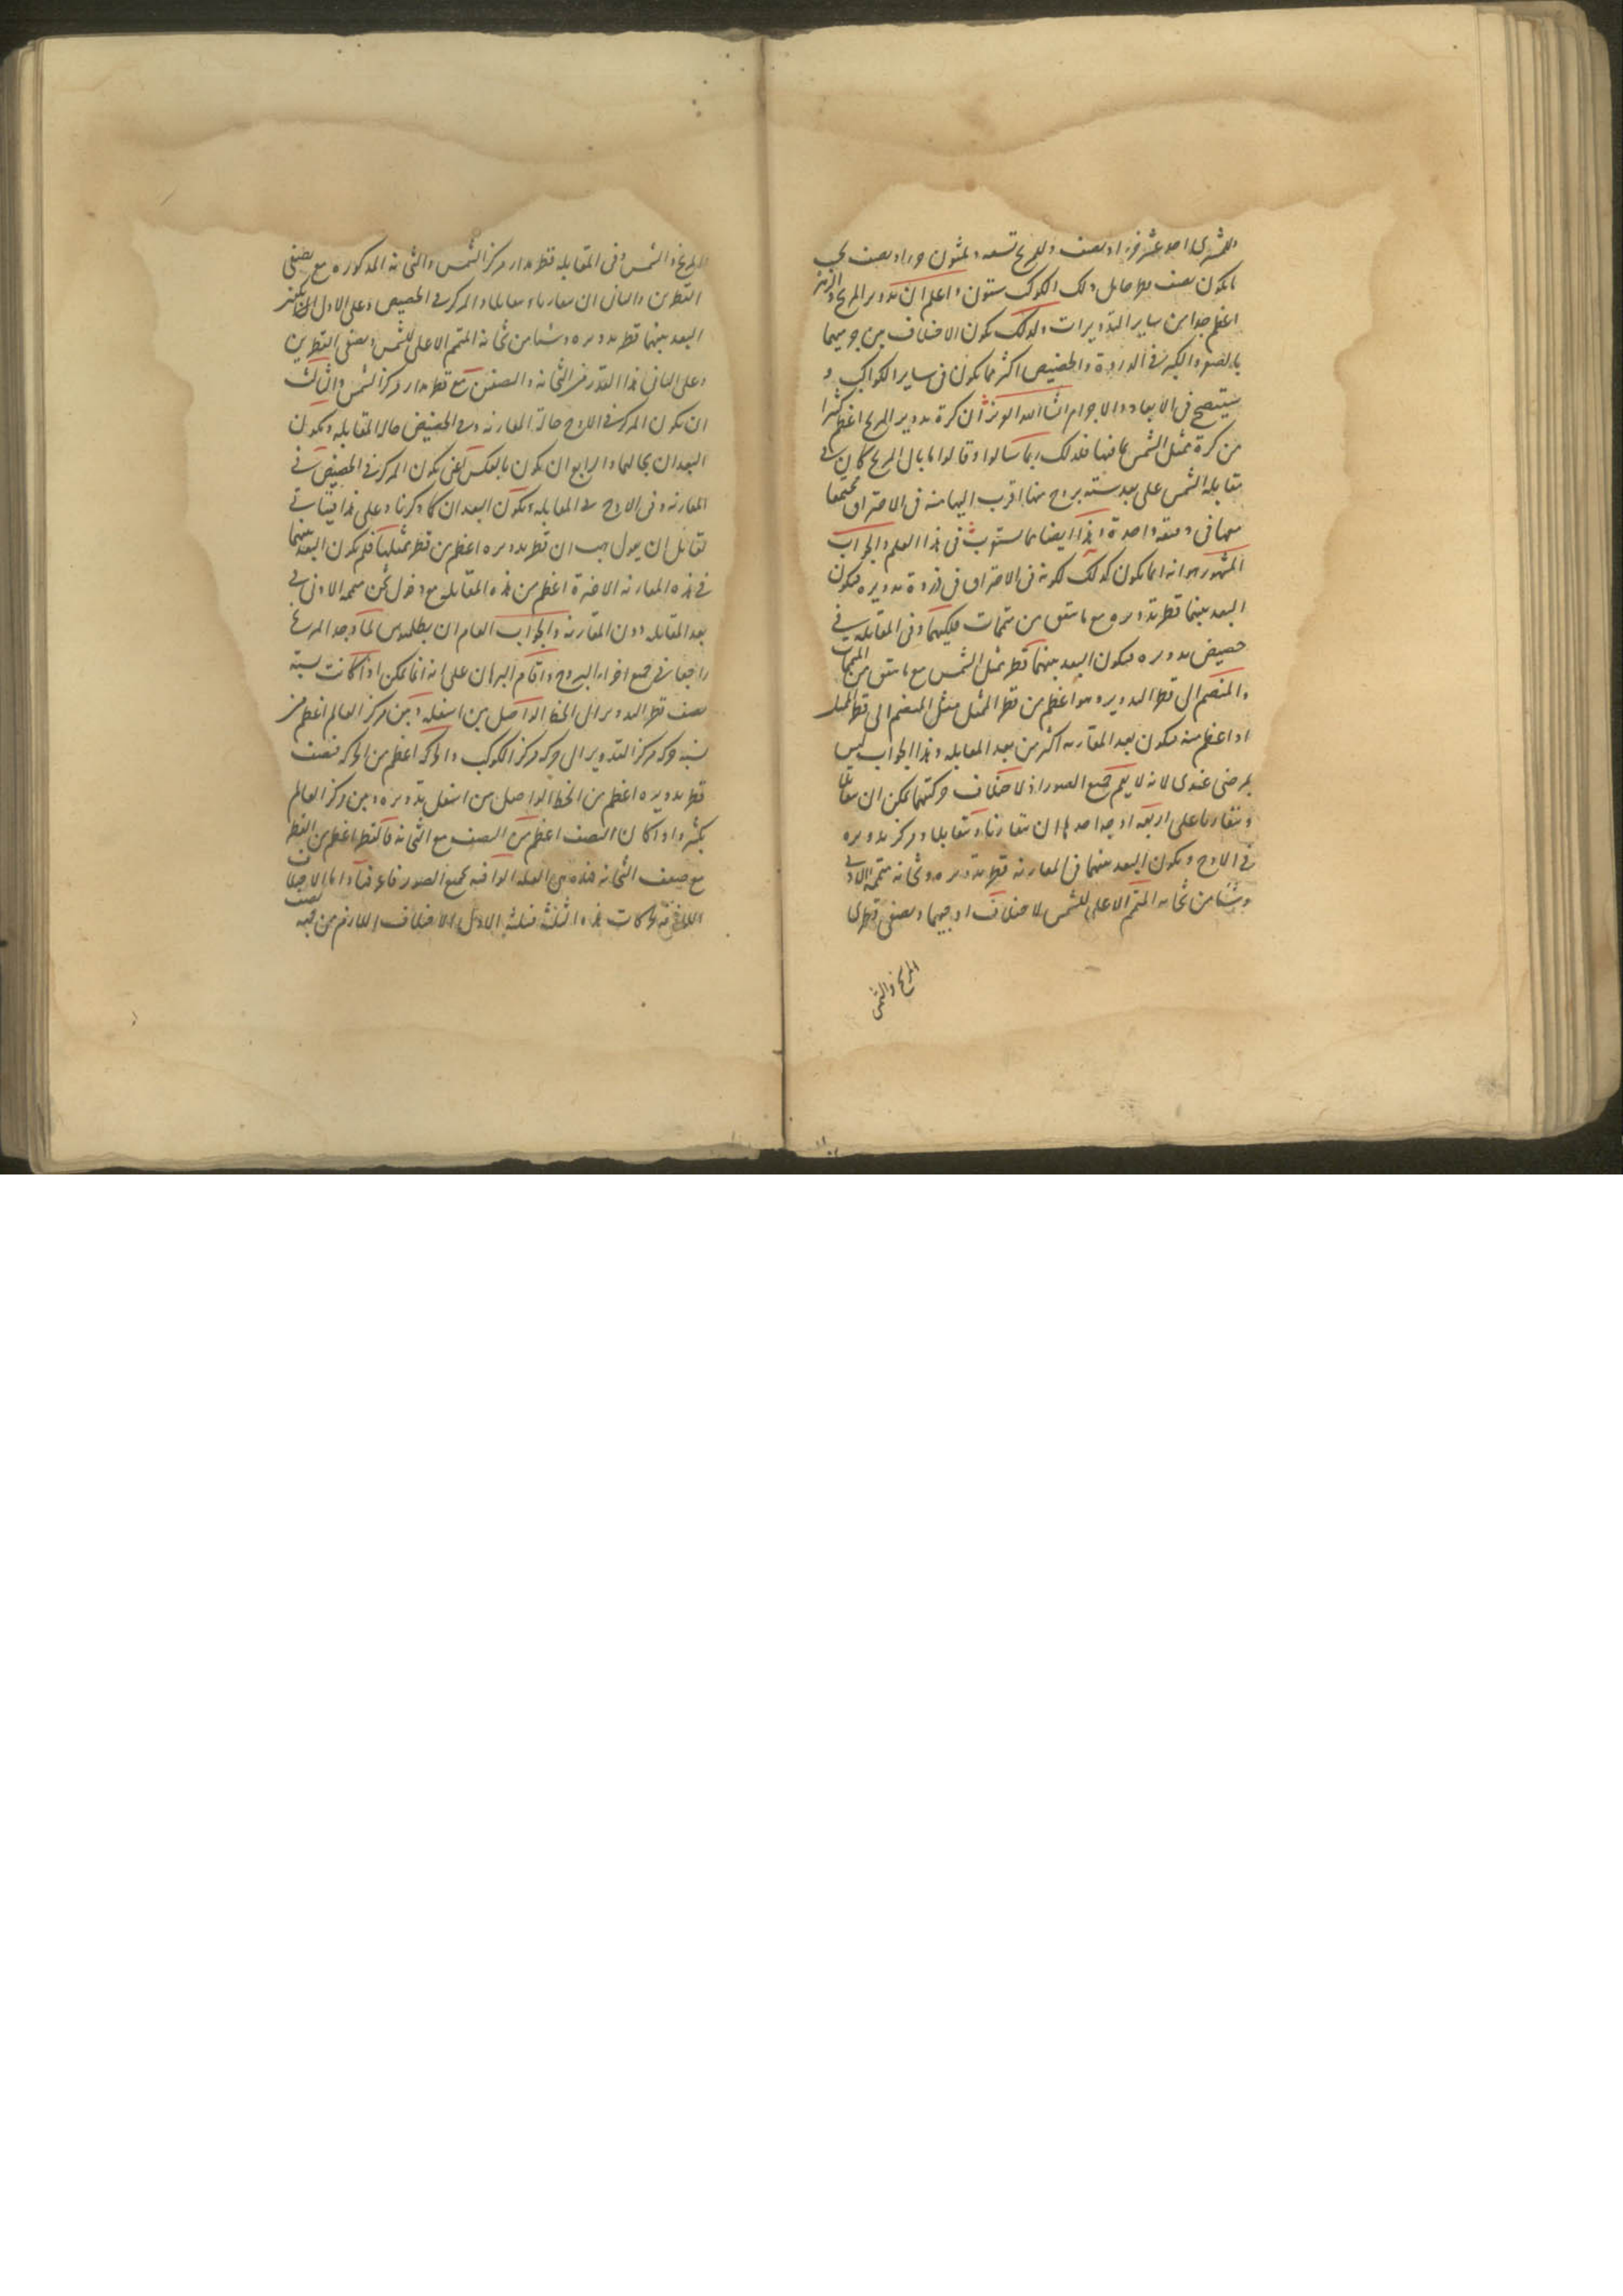 وللمشترى احد عشر جزءا ونصف وللمريخ تسعه وثلثون جزءا ونصف بحيث
ما يكون نصف قطر حامل ذلك الكوكب ستون واعلم ان تدوير المريخ والزهرة
اعظم جدا من ساير التدويرات ولذلك يكون الاختلاف بين جرميهما
بالصغر والكبر فى الذروة والحضيض اكثر مما يكون فى ساير الكواكب و
سيتضح فى الابعاد والاجرام انشاالله العزيز ان كرة تدوير المريخ اعظم كثيرا
من كرة ممثل الشمس بما فيها فلذلك ربما سالوا وقالوا ما بال المريخ كان فى
مقابلة الشمس على بعد ستة بروج منها اقرب اليها منه فى الاحتراق مجتمعا
معها فى دقيقه واحدة وهذا ايضا مما يستغرب فى هذا العلم والجواب
المشهور هو انه انما يكون كذلك لكونه فى الاحتراق فى ذروة تدويره فيكون
البعد بينهما قطر تدويره مع ما يتفق من متممات فلكيهما وفى المقابلة فى
حضيض تدويره فيكون البعد بينهما قطر ممثل الشمس مع ما يتفق من المتممات
والمنضم الى قطر التدوير وهو اعظم من قطر الممثل مثل المنضم الى قطر الممثل
او اعظم منه فيكون بعد المقارنه اكثر من بعد المقابله وهذا الجواب ليس
بمرضى عندى لانه لا يعم جميع الصور اذ لاختلاف حركتهما يمكن ان يتقابلا
ويتقارنا على اربعة اوجه احدها ان يتقارنا ويتقابلا ومركز تدويره
فى الاوج ويكون البعد بينهما فى المقارنه قطر تدويره وثخانه متممه الادنى
وشيئا من ثخانه المتمم الاعلى للشمس لاختلاف اوجيهما ونصفى قطرى
المريخ والشمس
المريخ والشمس وفى المقابله قطر مدار مركز الشمس والثخانه المذكوره مع نصفى
القطرين والثانى ان يتقارنا ويتقابلا والمركز فى الحضيض وعلى الاول
البعد بينهما قطر تدويره وشيئا من ثخانه المتمم الاعلى للشمس ونصفى القطرين
وعلى الثانى هذا القدر من الثخانه والنصفين مع قطر مدار مركز الشمس والثالث
ان يكون المركز فى الاوج حالة المقارنه وفى الحضيض حاله المقابله ويكون
البعدان بحالهما والرابع ان يكون بالعكس اعنى يكون المركز فى الحضيض فى
المقارنه وفى الاوج فى المقابله ويكون البعدان كما ذكرنا وعلى هذا فيتاتى
لقائل ان يقول هب ان قطر تدويره اعظم من قطر ممثلها فلم يكون البعد بينهما
فى هذه المقارنه الاخيرة اعظم من هذه المقابله مع دخول ثخن متممه الادنى فى
بعد المقابله دون المقارنه والجواب العام ان بطلميوس لما وجد المريخ
راجعا فى جميع اجزاء البروج واقام البرهان على انه انما يمكن اذا كانت نسبة
نصف قطر التدوير الى الخط الواصل بين اسفله وبين مركز العالم اعظم من
نسبة حركه مركز التدوير الى حركه مركز الكوكب والحركه اعظم من الحركه فنصف
قطر تدويره اعظم من الخط الواصل من اسفل تدويره وبين مركز العالم
بكثير واذا كان النصف اعظم من النصف مع الثخانه فالقطر اعظم من القطر
مع ضعف الثخانه فهذه هى العلة الوافيه بجميع الصور فاعرفها واما الاختلاف
اللاحقه بحركات هذه الثلثة فثلثة الاول الاختلاف اللازم من جهة